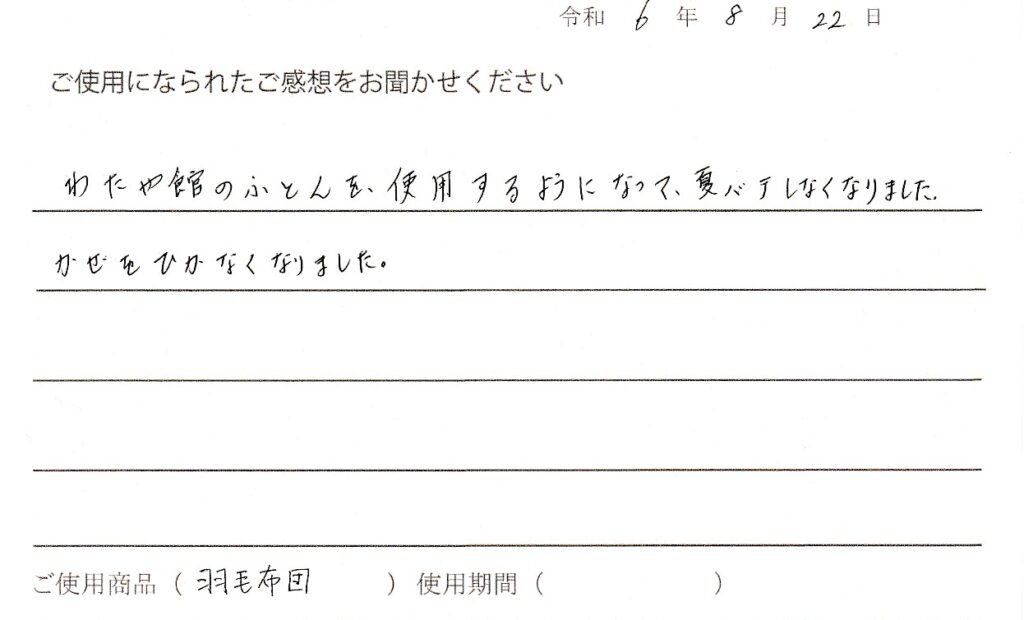 令和 6 年 8 月 22 日
ご使用になられたご感想をお聞かせください
わたや館のふとんを、使用するようになって、夏バテしなくなりました.
かぜをひかなくなりました。
ご使用商品（ 羽毛布団 ） 使用期間（ ）